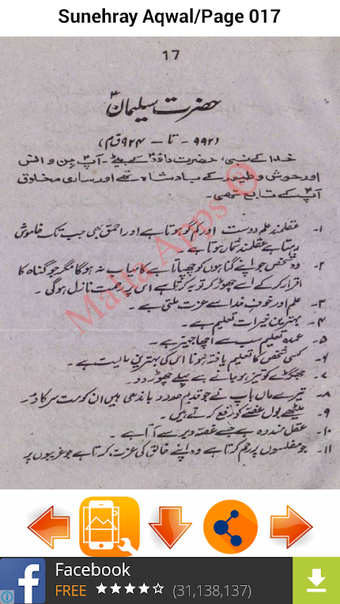 Sunehray Aqwal/Page 017
17
حضرت سلیمانؑ
(۹۹۲ - تا - ۹۲۴ ق م)
خدا کے نبی، حضرت داؤدؑ کے بیٹے۔ آپؑ جن و انس
اور وحوش و طیور کے بادشاہ تھے اور ساری مخلوق
آپؑ کے تابع تھی۔
۱- عقلمند علم دوست اور کم گو ہوتا ہے اور احمق بھی جب تک خاموش
رہتا ہے عقلمند شمار ہوتا ہے۔
۲- وہ شخص جو اپنے گناہوں کو چھپاتا ہے کامیاب نہ ہوگا مگر جو گناہ کا
اقرار کر کے اسے چھوڑ کر توبہ کرتا ہے اس پر رحمت نازل ہوگی۔
۳- علم اور خوفِ خدا سے عزت ملتی ہے۔
۴- بہترین خیرات تعلیم ہے۔
۵- عمدہ تعلیم سب سے اچھا جہیز ہے۔
۶- کسی شخص کا تعلیم یافتہ ہونا اس کی بہترین مالیت ہے۔
۷- جھگڑے کو تیز ہو جانے سے پہلے چھوڑ دو۔
۸- تیرے ماں باپ نے جو قدیم حدود باندھی ہیں ان کو مت سرکاؤ۔
۹- میٹھے بول غصے کو رفع کرتے ہیں۔
۱۰- عقل مند وہ ہے جسے غصہ دیر سے آتا ہے۔
۱۱- جو مفلسوں پر رحم کرتا ہے وہ اپنے خالق کی عزت کرتا ہے جو غریبوں پر
Malta Apps ©
Facebook
FREE (31,138,137)